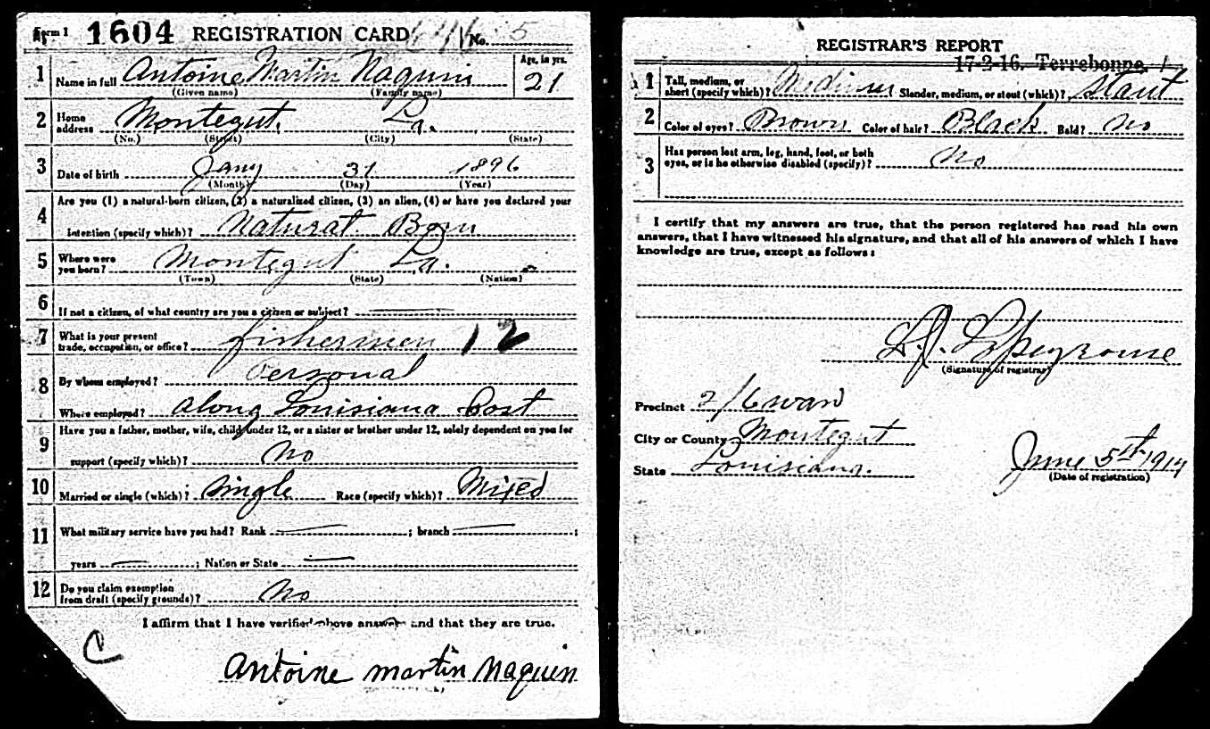 Form 1 1604 REGISTRATION CARD No. 5
1 Name in full Antoine Martin Naquin Age, in yrs. 21
(Given name) (Family name)
2 Home address Montegut, La.
(No.) (Street) (City) (State)
3 Date of birth Jany 31 1896
(Month) (Day) (Year)
Are you (1) a natural-born citizen, (2) a naturalized citizen, (3) an alien, (4) or have you declared your
4 intention (specify which)? Natural Born
5 Where were you born? Montegut La.
(Town) (State) (Nation)
6 If not a citizen, of what country are you a citizen or subject?
7 What is your present trade, occupation, or office? fishermen 12
8 By whom employed? Personal
Where employed? along Louisiana Cost
9 Have you a father, mother, wife, child under 12, or a sister or brother under 12, solely dependent on you for
support (specify which)? No
10 Married or single (which)? Single Race (specify which)? Mixed
11 What military service have you had? Rank ; branch ;
years ; Nation or State
12 Do you claim exemption from draft (specify grounds)? No
I affirm that I have verified above answers and that they are true.
C
Antoine martin Naquin
REGISTRAR'S REPORT
17-2-16. Terrebonne
1 Tall, medium, or short (specify which)? Medium Slender, medium, or stout (which)? Staut
2 Color of eyes? Brown Color of hair? Black Bald? No
3 Has person lost arm, leg, hand, foot, or both eyes, or is he otherwise disabled (specify)? No
I certify that my answers are true, that the person registered has read his own
answers, that I have witnessed his signature, and that all of his answers of which I have
knowledge are true, except as follows:
(Signature of registrar)
Precinct 2/6 ward
City or County Montegut
State Louisiana. June 5st 1917
(Date of registration)